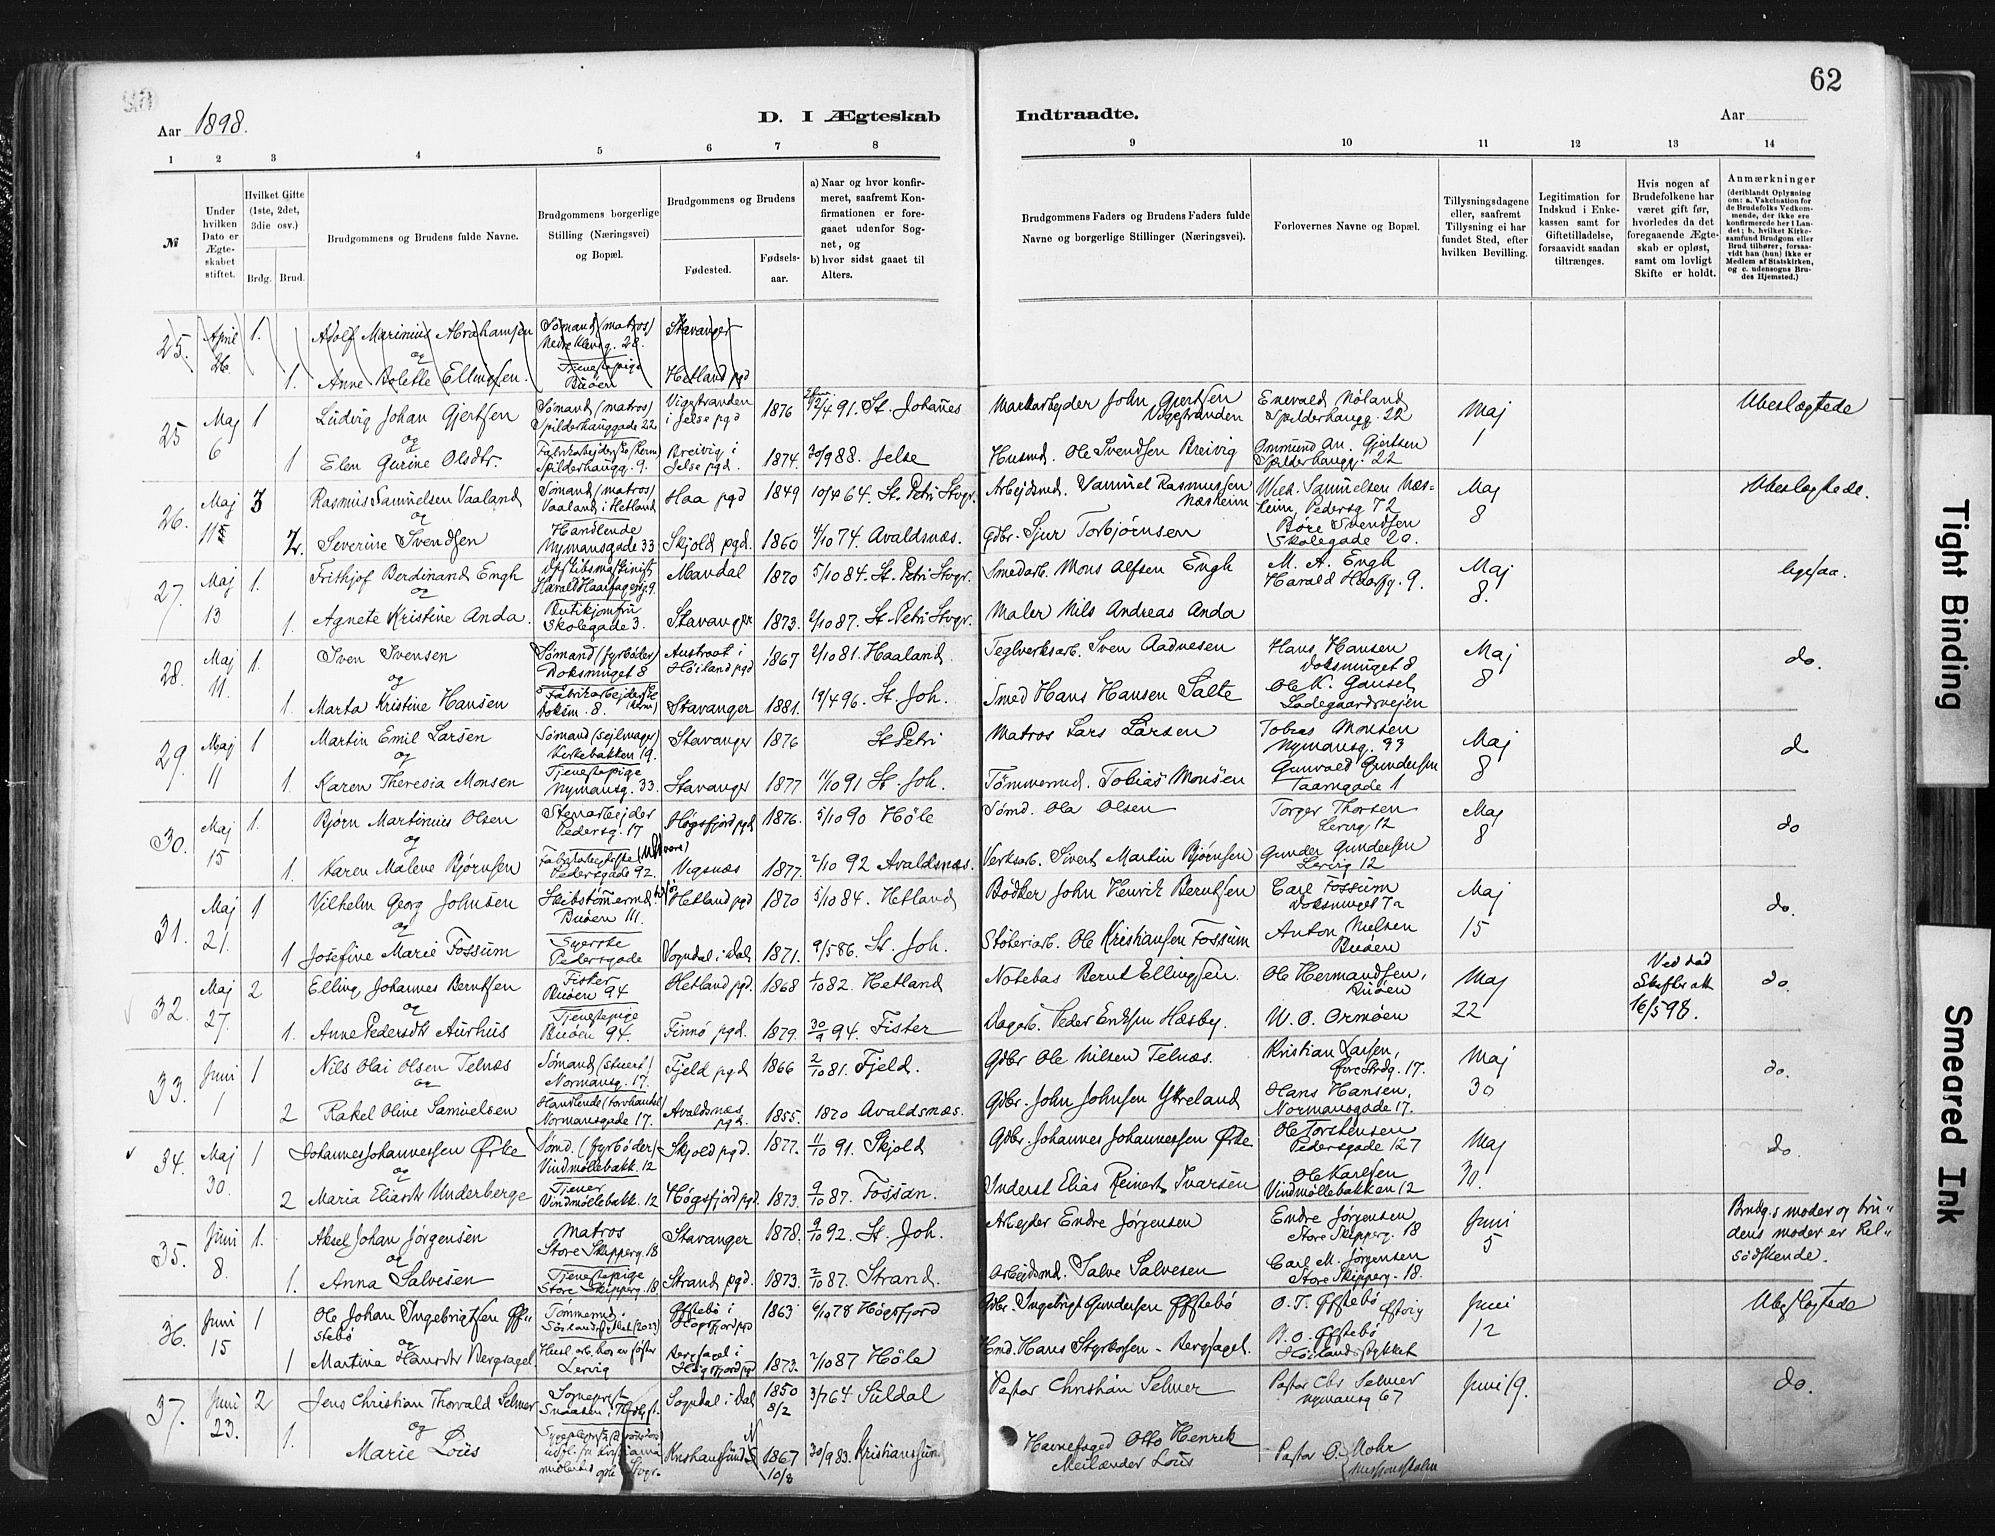 62
Aar 1898.
D. I Ægteskab
Indtraadte.
Aar
1 2 3 4 5 6 7 8
9 10 11 12 13 14
№
Under hvilken Dato er Ægteskabet stiftet.
Hvilket Gifte (1ste, 2det, 3die osv.)
Brdg. Brud.
Brudgommens og Brudens fulde Navne.
Brudgommens borgerlige Stilling (Næringsvei) og Bopæl.
Brudgommens og Brudens
Fødested.
Fødselsaar.
a) Naar og hvor konfirmeret, saafremt Konfirmationen er foregaaet udenfor Sognet, og
b) hvor sidst gaaet til Alters.
Brudgommens Faders og Brudens Faders fulde Navne og borgerlige Stillinger (Næringsvei).
Forlovernes Navne og Bopæl.
Tillysningsdagene eller, saafremt Tillysning ei har fundet Sted, efter hvilken Bevilling.
Legitimation for Indskud i Enkekassen samt for Giftetilladelse, forsaavidt saadan tiltrænges.
Hvis nogen af Brudefolkene har været gift før, hvorledes da det foregaaende Ægteskab er opløst, samt om lovligt Skifte er holdt.
Anmærkninger
(deriblandt Oplysning om: a. Vakcination for de Brudefolks Vedkommende, der ikke ere konfirmerede her i Landet; b. hvilket Kirkesamfund Brudgom eller Brud tilhører, forsaavidt han (hun) ikke er Medlem af Statskirken, og c. udensogns Brudes Hjemsted.)
25. April 26. 1. Adolf Marinius Abrahamsen Sømand (matros) Nedre Klevg. 28. Stavanger
og
1. Anne Bolette Ellingsen. Tjenestepige Buøen Hetland pgd
25 Maj 6 1 Ludvig Johan Gjertsen Sømand (matros) Spilderhauggade 22 Vigestranden i Jelse pgd 1876 12/4 91. St. Johannes Markarbejder John Gjertsen Vigestranden Enevald Nøland Spilderhaugg. 22 Maj 1 Ubeslægtede
og
1 Elen Gurine Olsdtr. Spilderhaugg. 9. Breivig i Jelse pgd. 1874. 30/9 88. Jelse Husmd. Ole Svendsen Breivig Gjertsen Spilderhaugg. 22
26. Maj 3 Rasmus Samuelsen Vaaland Sømand (matros) Vaaland i Hetland Haa pgd 1849 10/4 64. St. Petri Stvgr. Arbejdsmd. Samuel Rasmussen Næsheim Wilh. Samuelsen Næsheim, Pedersg 72 Maj 8 Ubeslægtede.
og
2. Severine Svendsen Handlende Nymansgade 33 Skjold pgd. 1860 4/10 74. Avaldsnæs. Gdbr. Sjur Torbjørnsen Børe Svendsen Skolegade 20.
27. Maj 13 1. Frithjof Berdinand Engh Harald Haarfagersg. 9. Mandal 1870 5/10 84. St. Petri Stvgr. Smedarb. Mons Alfsen Engh M. A. Engh Harald Haarfg. 9. Maj 8. ligesaa.
og
1. Agnete Kristine Anda. Butikjomfru Skolegade 3. Stavanger 1873. 2/10 87. St Petri Stvgr. Maler Nils Andreas Anda
28. Maj 11. 1. Sven Svensen Sømand (fyrbøder) Doksmuget 8 Austraat i Høiland pgd 1867 2/10 81. Haaland. Teglverksarb. Sven Aadnesen Hans Hansen Doksmuget 8 Maj 8 do.
og
1. Marta Kristine Hansen Doksm. 8. Stavanger 1881. 19/4 96. St. Joh. Smed Hans Hansen Salte Ole K. Gausel Ladegaardsvejen
29. Maj 11 1 Martin Emil Larsen Sømand (sejlmager) Kirkebakken 19. Stavanger 1876 St Petri Matros Lars Larsen Tobias Monsen Nymansg. 33 Maj 8 do
og
1. Karen Theresia Monsen Tjenestepige Nymansg. 33. Stavanger 1877 11/10 91 St. Joh. Tømmermd. Tobias Monsen Gunvald Gundersen Taarngade 1
30. Maj 15 1. Bjørn Martinius Olsen Stenarbejder Pedersg. 17 Høgsfjord pgd 1876. 5/10 90 Høle Sømd. Ola Olsen Torger Thorsen Lervig 12 Maj 8 do
og
1. Karen Malene Bjørnsen Pedersgade 92. Vigsnæs 1877. 2/10 92 Avaldsnæs. Verksarb. Sivert Martin Bjørnsen Gunder Gundersen Lervig 12
31. Maj 21. 1 Vilhelm Georg Johnsen Skibstømermd Buøen 111. Hetland pgd 1870 5/10 84. Hetland Bødker John Henrik Berntsen Carl Fossum Doksmuget 7a Maj 15 do.
og
1 Josefine Marie Fossum Syerske Pedersgade Sogndal i Dal. 1871. 9/5 86. St. Joh. Støberiarb. Ole Kristiansen Fossum Anton Nielsen Buøen
32. Maj 27. 2 Elling Johannes Berntsen Fisker Buøen 94 Hetland pgd. 1868 1/10 82. Hetland Notebas Bernt Ellingsen. Ole Hermandsen, Buøen Maj 22 Ved død Skifteratt 16/5 98. do.
og
1. Anne Pedersdtr Aurhus Tjenestepige Buøen 94. Finnø pgd. 1879. 30/9 94. Fister Dagarb. Peder Eriksen Hæsby. W. O. Ormøen
33. Juni 1 1 Nils Olai Olsen Telnæs Sømand (stuert) Normansg. 17. Fjeld pgd 1866 2/10 81. Fjeld. Gdbr Ole Nilsen Telnæs. Kristian Larsen, Øvre Strdg. 17. Maj 30 do.
og
2 Rakel Oline Samuelsen Handlende (torvhandel) Normansgade 17. Avaldsnæs pgd. 1855. 1870 Avaldsnæs. Gdbr. John Johnsen Ytreland Hans Hansen, Normansgade 17.
34. Maj 30. 1 Johannes Johannessen Ørke Sømd. (fyrbøder) Vindmøllebakk. 12 Skjold pgd. 1877. 11/10 91. Skjold Gdbr. Johannes Johannessen Ørke Ole Torstensen Pedersgade 127 Maj 30. do.
og
2 Maria Eliasdtr Underberge Tjener Vindmøllebakk. 12 Høgsfjord pgd. 1873 9/10 87. Fossan. Inderst Elias Reinert Ivarsen Ole Karlsen Vindmøllebakken 12
35. Juni 8. 1. Aksel Johan Jørgensen Matros Store Skipperg. 18 Stavanger 1878. 9/10 92. St. Joh. Arbejder Endre Jørgensen Endre Jørgensen Store Skipperg. 18 Juni 5 Brudg.s moder og brudens moder er helsødskende.
og
1. Anna Salvesen Tjenestepige Store Skipperg. 18 Strand pgd. 1873. 2/10 87. Strand. Arbejdsmd. Salve Salvesen Carl M. Jørgensen Store Skipperg. 18.
36. Juni 15 1 Ole Johan Ingebrigtsen Øfstebø Tømmermd. Øfstebø i Høgsfjord pgd 1863 6/10 78 Høgsfjord Gdbr. Ingebrigt Gundersen Øfstebø O. T. Øfstebø Juni 12 Ubeslægtede
og
1 Martina Hansdtr Bergsagel Lervig Bergsagel i Høgsfjord pgd 1873. 2/10 87 Høle Hmd. Hans Styrkorsen Bergsagel. B. O. Øfstebø Høilandsstykket
37. Juni 23. 2 Jens Christian Thorvald Selmer Sogneprest Snaasen i Sogndal i Dal. 1850 8/2 3/7 64 Suldal Pastor Christian Selmer Pastor Chr Selmer Nymansg 67 Juni 19. do.
og
1. Marie Lous Kristiansund N 1867 10/8 30/9 83. Kristianssund Havnefoged Otto Henrik Meilænder Lous Pastor O. Mohr Missionsskolen
Tight Binding
Smeared Ink